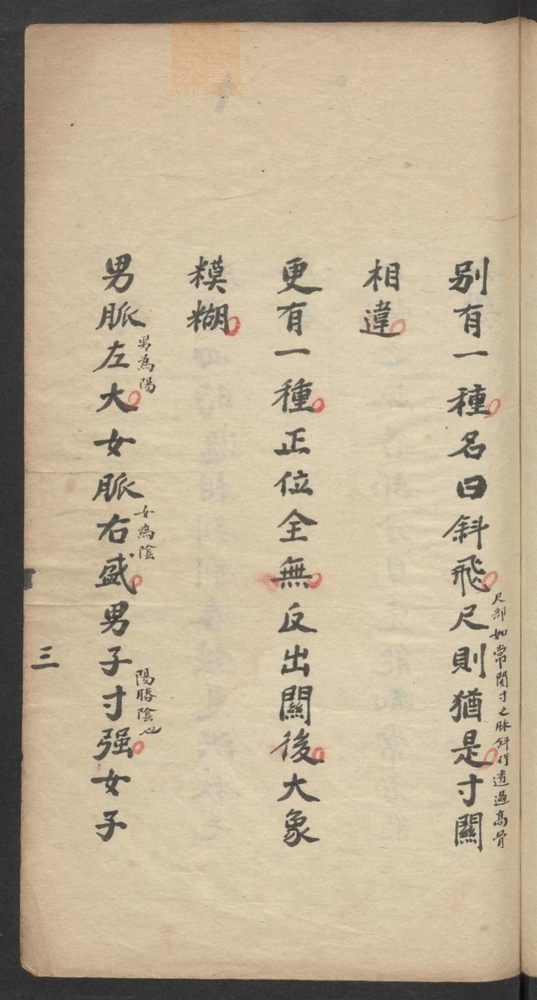 別有一種名曰斜飛尺則猶是寸關
尺部如常關寸之脉斜行透過高骨
相違
更有一種正位全無反出關後大象
糢糊
男脈左大女脈右盛男子寸强女子
男為陽
女為陰
陽勝陰也
三